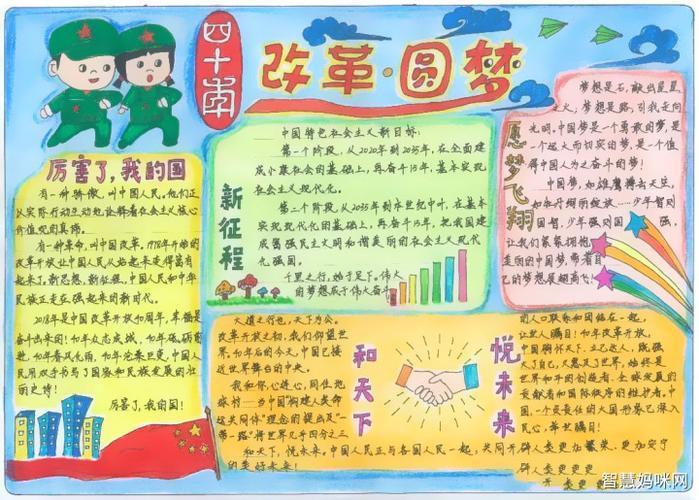 四十年
改革·圆梦
厉害了,我的国
有一种骄傲,叫中国人民。他们正
以实际行动生动地诠释着社会主义核心
价值观的真谛。
有一种革命,叫中国改革。1978年开始的
改革开放让中国人从站起来走得富有
起来了。新思想,新征程。中国人民和中华
民族正走在强起来的新时代。
2018年是中国改革开放40周年,幸福是
奋斗出来的!40年众志成城,40年砥砺前
进,40年春风化雨,40年沧桑巨变,中国人
民用双手书写了国家和民族发展的壮
丽史诗!
厉害了,我的国!
新征程
中国特色社会主义新目标:
第一个阶段,从2020年到2035年,在全面建
成小康社会的基础上,再奋斗15年,基本实现
社会主义现代化。
第二个阶段,从2035年到本世纪中叶,在基本
实现现代化的基础上,再奋斗15年,把我国建
成富强民主文明和谐美丽的社会主义现代
化强国。
千里之行,始于足下。伟大
的梦想瓜于伟大奋斗
愿梦飞翔
梦想是石,献出星星
之火;梦想是路,引我走向
光明。中国梦是一个勇敢的梦,是
一个远大而切实的梦,是一个值
得中国人为之奋斗的梦!
中国梦,如雄鹰搏击天空,
如牡丹绚丽绽放……少年智则
国智,少年强则国强,
让我们紧紧拥抱
美丽的中国梦,带着自
己的梦想展翅高飞!
和天下
大道之行也,天下为公。
改革开放之初,我们仰望世
界,40年后的今天,中国已接
近世界舞台的中央。
我和你,心连心,同住地
球村——当中国"构建人类命
运共同体"理念的提出及"一
带一路"将世界几乎四分之三
的人口联系和团结在一起,
让世人瞩目!40年改革开放,
中国胸怀天下,立己达人,既强
大了自己,又惠及了世界,始终是
世界和平的创造者,全球发展的
贡献者和国际秩序的维护者。中
国,一个负责任的大国形象已深入
民心,举世瞩目!
悦未来
和天下,悦未来。中国人民正与各国人民一起,共同开
的美好未来!
智慧妈咪网